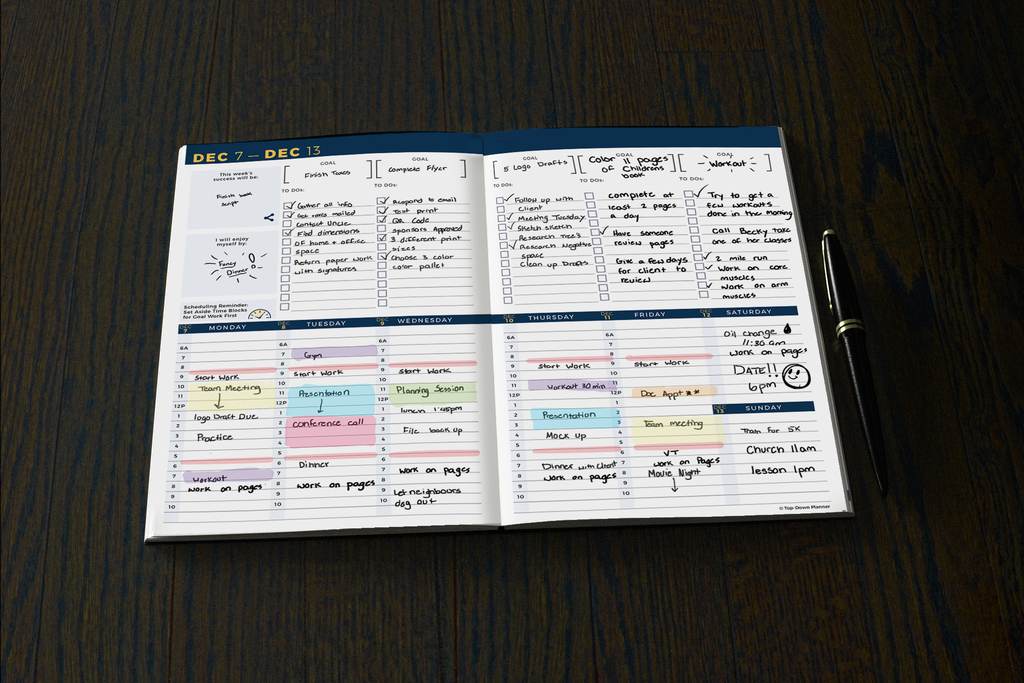 DEC 7 — DEC 13
This week's
success will be:
Finish book
script
I will enjoy
myself by:
Fancy
Dinner
Scheduling Reminder:
Set Aside Time Blocks
for Goal Work First
GOAL
Finish Taxes
TO DOs:
Gather all info
Get forms mailed
Contact Uncle
Find dimensions
of home + office
space
Return paper work
with signatures
GOAL
Complete Flyer
TO DOs:
Respond to email
Test print
QR Code
sponsors Approved
3 different print
sizes
Choose 3 color
color pallet
GOAL
5 Logo Drafts
TO DOs:
Follow up with
client
Meeting Tuesday
Sketch sketch
Research Tree's
Research Negative
space
Clean up Drafts
GOAL
Color 11 pages
of Childrens
book
TO DOs:
complete at
least 2 pages
a day
Have someone
review pages
Give a few days
for client to
review
GOAL
Workout
TO DOs:
Try to get a
few workouts
done in the morning
call Becky take
one of her classes
2 mile run
Work on core
muscles
Work on arm
muscles
DEC 7 MONDAY
6A
7
8
9 Start Work
10 Team Meeting
11
12P
1 logo Draft Due
2
3 Practice
4
5
6
7 Workout
8 work on pages
9
10
DEC 8 TUESDAY
6A
7 Gym
8
9 Start Work
10
11 Presentation
12P
1
2 conference call
3
4
5
6 Dinner
7
8 work on pages
9
10
DEC 9 WEDNESDAY
6A
7
8
9 Start Work
10
11 Planning Session
12P
1 lunch 1:45pm
2
3 File back up
4
5
6
7 Work on pages
8
9 Let neighboors
10 dog out
DEC 10 THURSDAY
6A
7
8
9 Start Work
10
11 Workout 30 min
12P
1
2 Presentation
3
4 Mock up
5
6
7 Dinner with Client
8 work on pages
9
10
DEC 11 FRIDAY
6A
7
8
9 Start Work
10
11
12P Doc Appt **
1
2
3 Team meeting
4
5
6 VT
7 work on Pages
8 Movie Night
9
10
DEC 12 SATURDAY
Oil change
11:30 am
work on pages
DATE!!
6pm
DEC 13 SUNDAY
Train for 5K
Church 11am
lesson 1pm
© Top-Down Planner